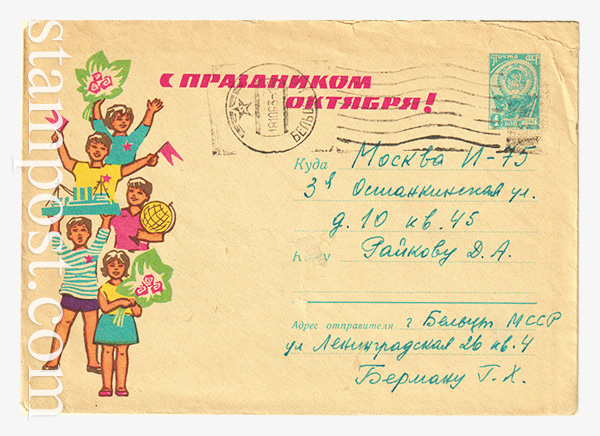 С ПРАЗДНИКОМ
ОКТЯБРЯ!
Почта СССР
4
181063
БЕЛЬЦЫ
Куда Москва И-75
3я Останкинская ул.
д. 10 кв. 45
Кому Райкову Д. А.
Адрес отправителя г Бельцы МССР
ул Ленинградская 26 кв. 4
Берману Г. Х.
stampost.com